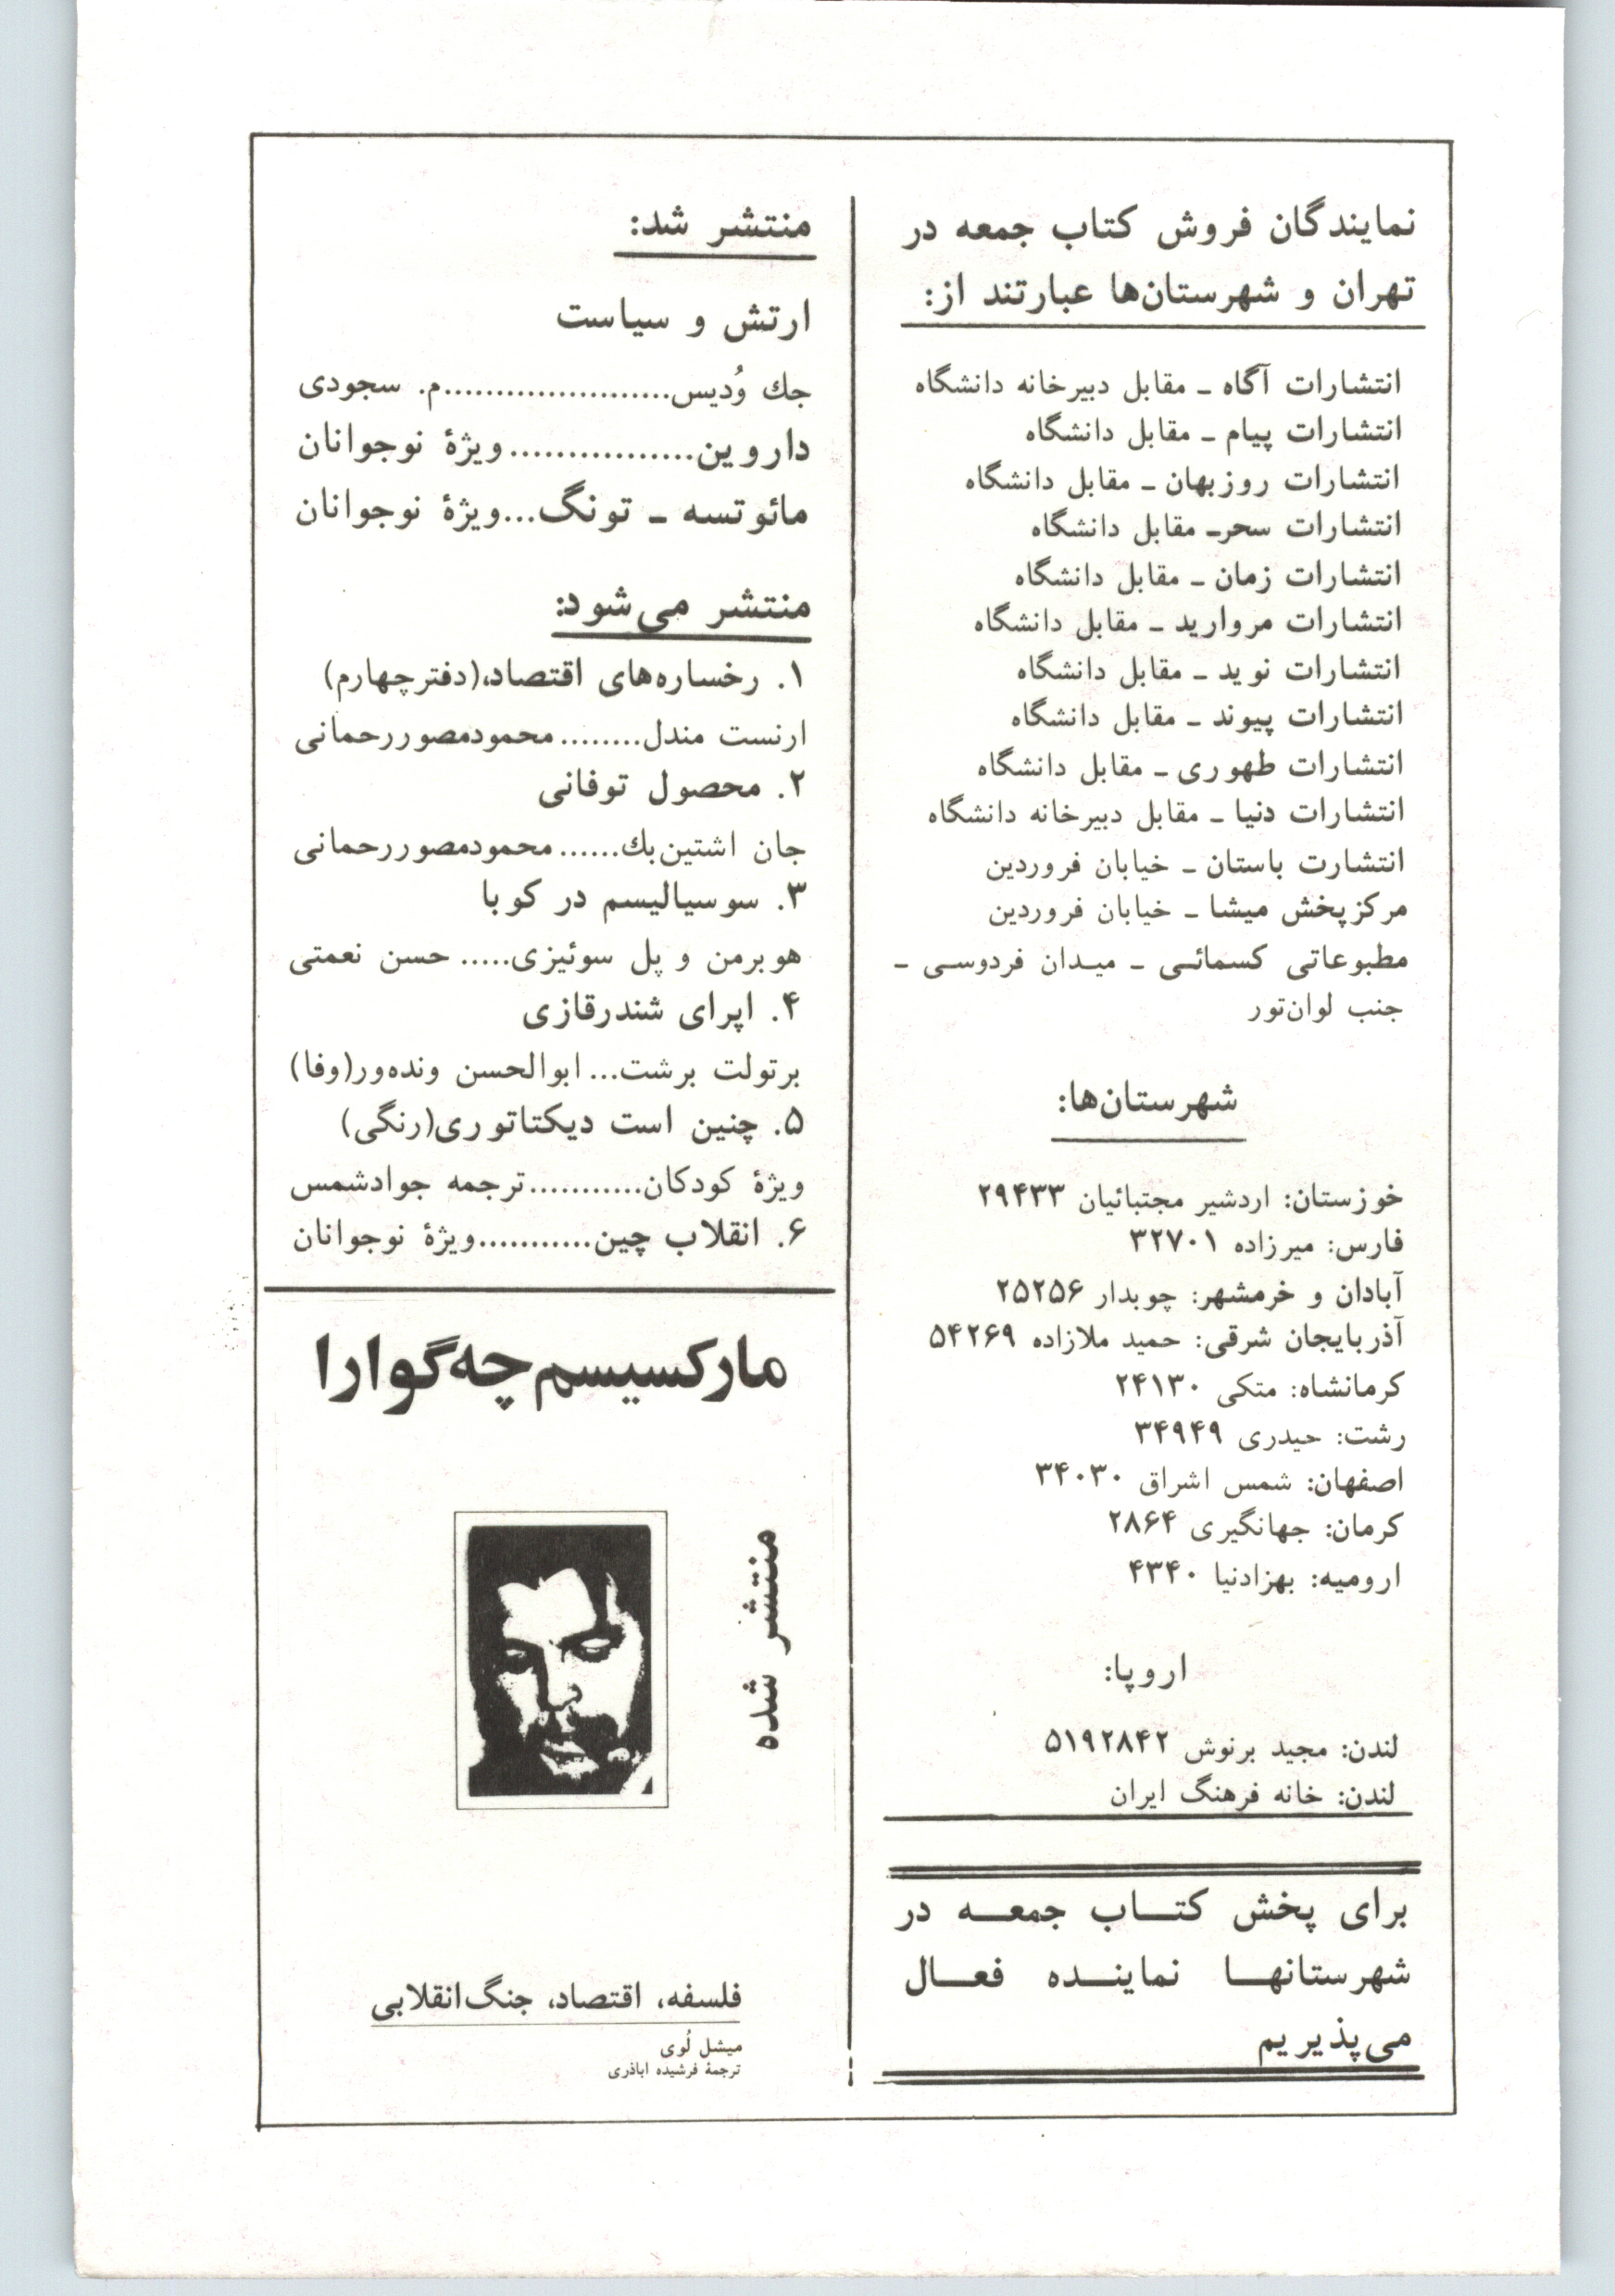 نمایندگان فروش کتاب جمعه در
تهران و شهرستان‌ها عبارتند از:
انتشارات آگاه ـ مقابل دبیرخانه دانشگاه
انتشارات پیام ـ مقابل دانشگاه
انتشارات روزبهان ـ مقابل دانشگاه
انتشارات سحرـ مقابل دانشگاه
انتشارات زمان ـ مقابل دانشگاه
انتشارات مروارید ـ مقابل دانشگاه
انتشارات نوید ـ مقابل دانشگاه
انتشارات پیوند ـ مقابل دانشگاه
انتشارات طهوری ـ مقابل دانشگاه
انتشارات دنیا ـ مقابل دبیرخانه دانشگاه
انتشارت باستان ـ خیابان فروردین
مرکزپخش میشا ـ خیابان فروردین
مطبوعاتی کسمائـی ـ میـدان فردوسـی ـ
جنب لوان‌تور
شهرستان‌ها:
خوزستان: اردشیر مجتبائیان ۲۹۴۳۳
فارس: میرزاده ۳۲۷۰۱
آبادان و خرمشهر: چوبدار ۲۵۲۵۶
آذربایجان شرقی: حمید ملازاده ۵۴۲۶۹
کرمانشاه: متکی ۲۴۱۳۰
رشت: حیدری ۳۴۹۴۹
اصفهان: شمس اشراق ۳۴۰۳۰
کرمان: جهانگیری ۲۸۶۴
ارومیه: بهزادنیا ۴۳۴۰
اروپا:
لندن: مجید برنوش ۵۱۹۲۸۴۲
لندن: خانه فرهنگ ایران
برای پخش کتـــاب جمعـــه در
شهرستانهـــا نماینـــده فعـــال
می‌پذیریم
منتشر شد:
ارتش و سیاست
جك وُدیس......................م. سجودی
داروین................ویژهٔ نوجوانان
مائوتسه ـ تونگ...ویژهٔ نوجوانان
منتشر می‌شود:
۱. رخساره‌های اقتصاد،(دفترچهارم)
ارنست مندل........محمودمصوررحمانی
۲. محصول توفانی
جان اشتین‌بك......محمودمصوررحمانی
۳. سوسیالیسم در کوبا
هوبرمن و پل سوئیزی.....حسن نعمتی
۴. اپرای شندرقازی
برتولت برشت...ابوالحسن ونده‌ور(وفا)
۵. چنین است دیکتاتوری(رنگی)
ویژهٔ کودکان...........ترجمه جوادشمس
۶. انقلاب چین...........ویژهٔ نوجوانان
مارکسیسم چه‌گوارا
منتشر شده
فلسفه، اقتصاد، جنگ‌انقلابی
میشل لُوی
ترجمهٔ فرشیده اباذری